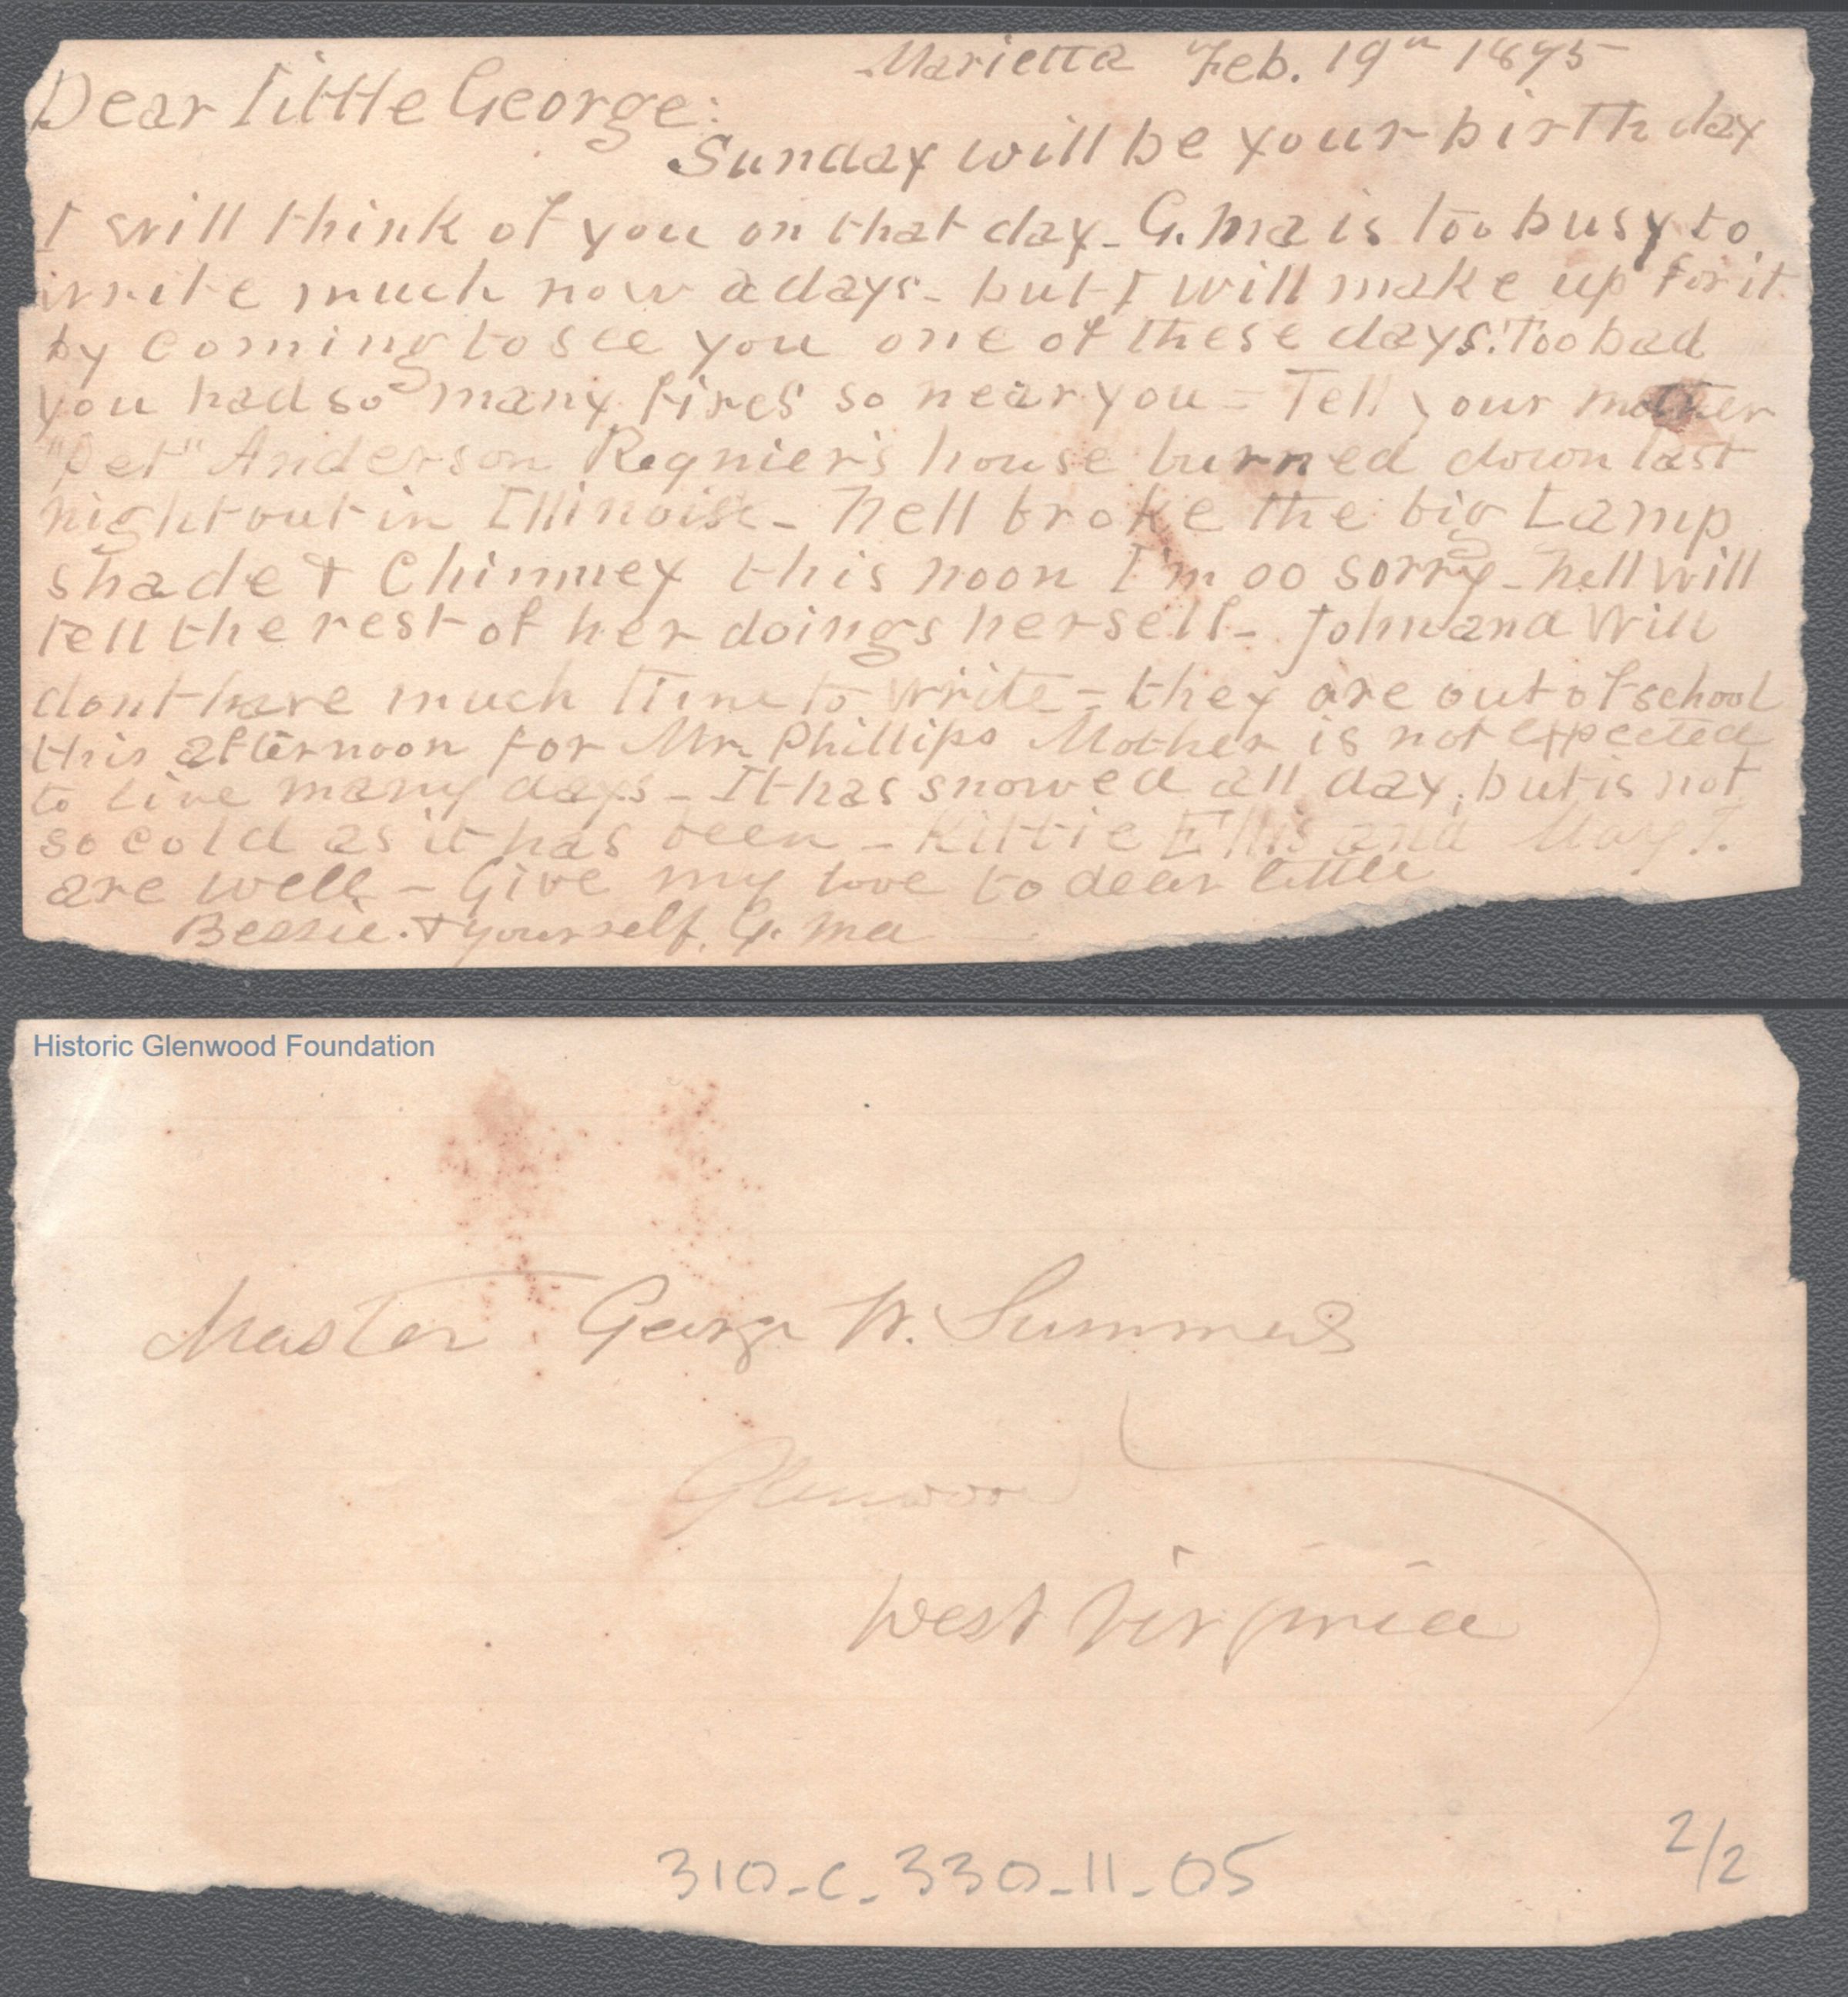 Marietta Feb. 19th 1895
Dear little George:
Sunday will be your birth day
I will think of you on that day - G. Ma is too busy to
write much now a days - but I will make up for it
by coming to see you one of these days. Too bad
you had so many fires so near you = Tell your mother
"Pet" Anderson Regnier's house burned down last
night out in Illinois - Nell broke the big Lamp
shade & Chimney this noon I'm oo sorry - Nell will
tell the rest of her doings herself - John and Will
dont have much time to write - they are out of school
this afternoon for Mr. Phillips Mother is not expected
to live many days - It has snowed all day, but is not
so cold as it has been - Kittie Ellis and May T.
are well - Give my love to dear little
Bessie. & yourself. G. Ma
Historic Glenwood Foundation
Master George W. Summers
Glenwood
West Virginia
310-C-330-11-05
2/2